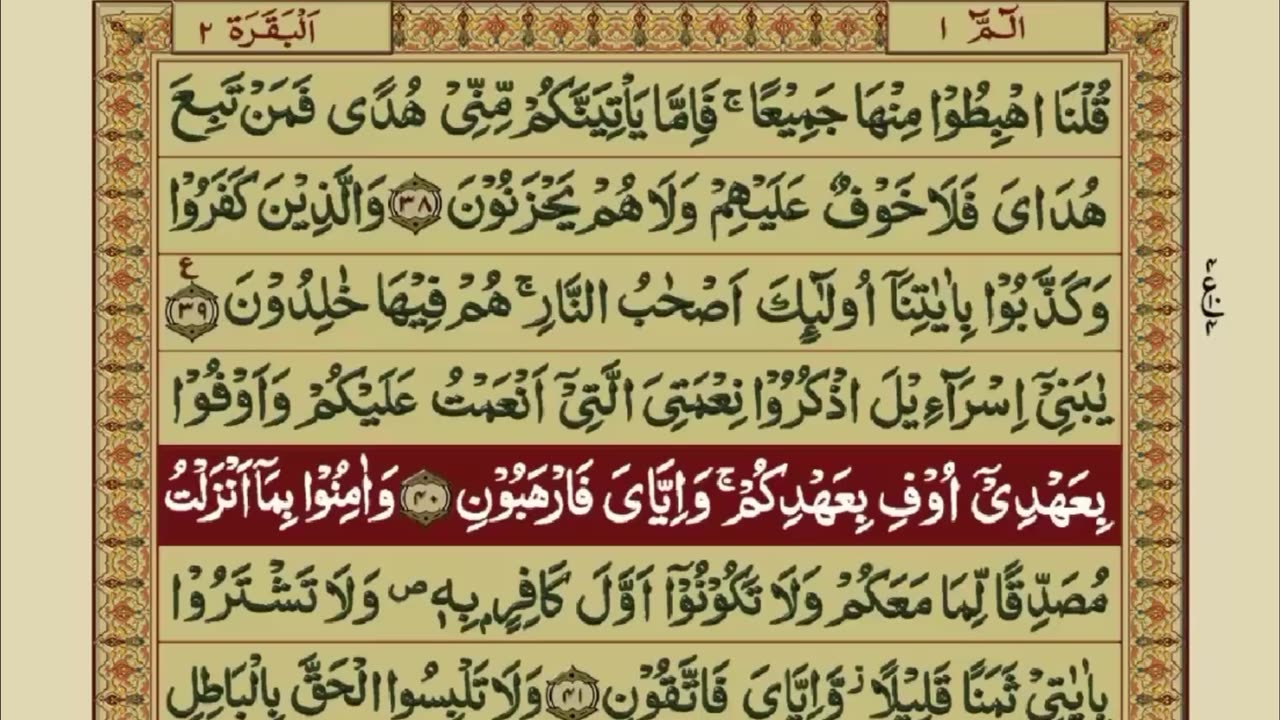 الٓمّٓ ١
اَلْبَقَرَة ٢
قُلْنَا اهْبِطُوْا مِنْهَا جَمِيْعًا ۚ فَاِمَّا يَاْتِيَنَّكُمْ مِّنِّىْ هُدًى فَمَنْ تَبِعَ
هُدَاىَ فَلَا خَوْفٌ عَلَيْهِمْ وَلَا هُمْ يَحْزَنُوْنَ ۝٣٨ وَالَّذِيْنَ كَفَرُوْا
وَكَذَّبُوْا بِاٰيٰتِنَآ اُولٰٓئِكَ اَصْحٰبُ النَّارِ ۚ هُمْ فِيْهَا خٰلِدُوْنَ ۝٣٩ ع
يٰبَنِىْٓ اِسْرَآءِيْلَ اذْكُرُوْا نِعْمَتِىَ الَّتِىْٓ اَنْعَمْتُ عَلَيْكُمْ وَاَوْفُوْا
بِعَهْدِىْٓ اُوْفِ بِعَهْدِكُمْ ۚ وَاِيَّاىَ فَارْهَبُوْنِ ۝٤٠ وَاٰمِنُوْا بِمَآ اَنْزَلْتُ
مُصَدِّقًا لِّمَا مَعَكُمْ وَلَا تَكُوْنُوْٓا اَوَّلَ كَافِرٍۢ بِهٖ ۖ وَلَا تَشْتَرُوْا
بِاٰيٰتِىْ ثَمَنًا قَلِيْلًا ۡ وَّاِيَّاىَ فَاتَّقُوْنِ ۝٤١ وَلَا تَلْبِسُوا الْحَقَّ بِالْبَاطِلِ